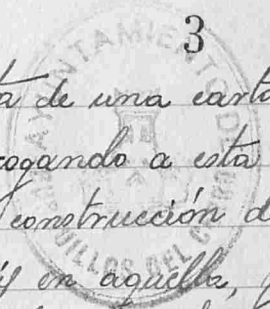 3
AYUNTAMIENTO DE
a de una carta
rogando a esta
construcción d
en aquella,